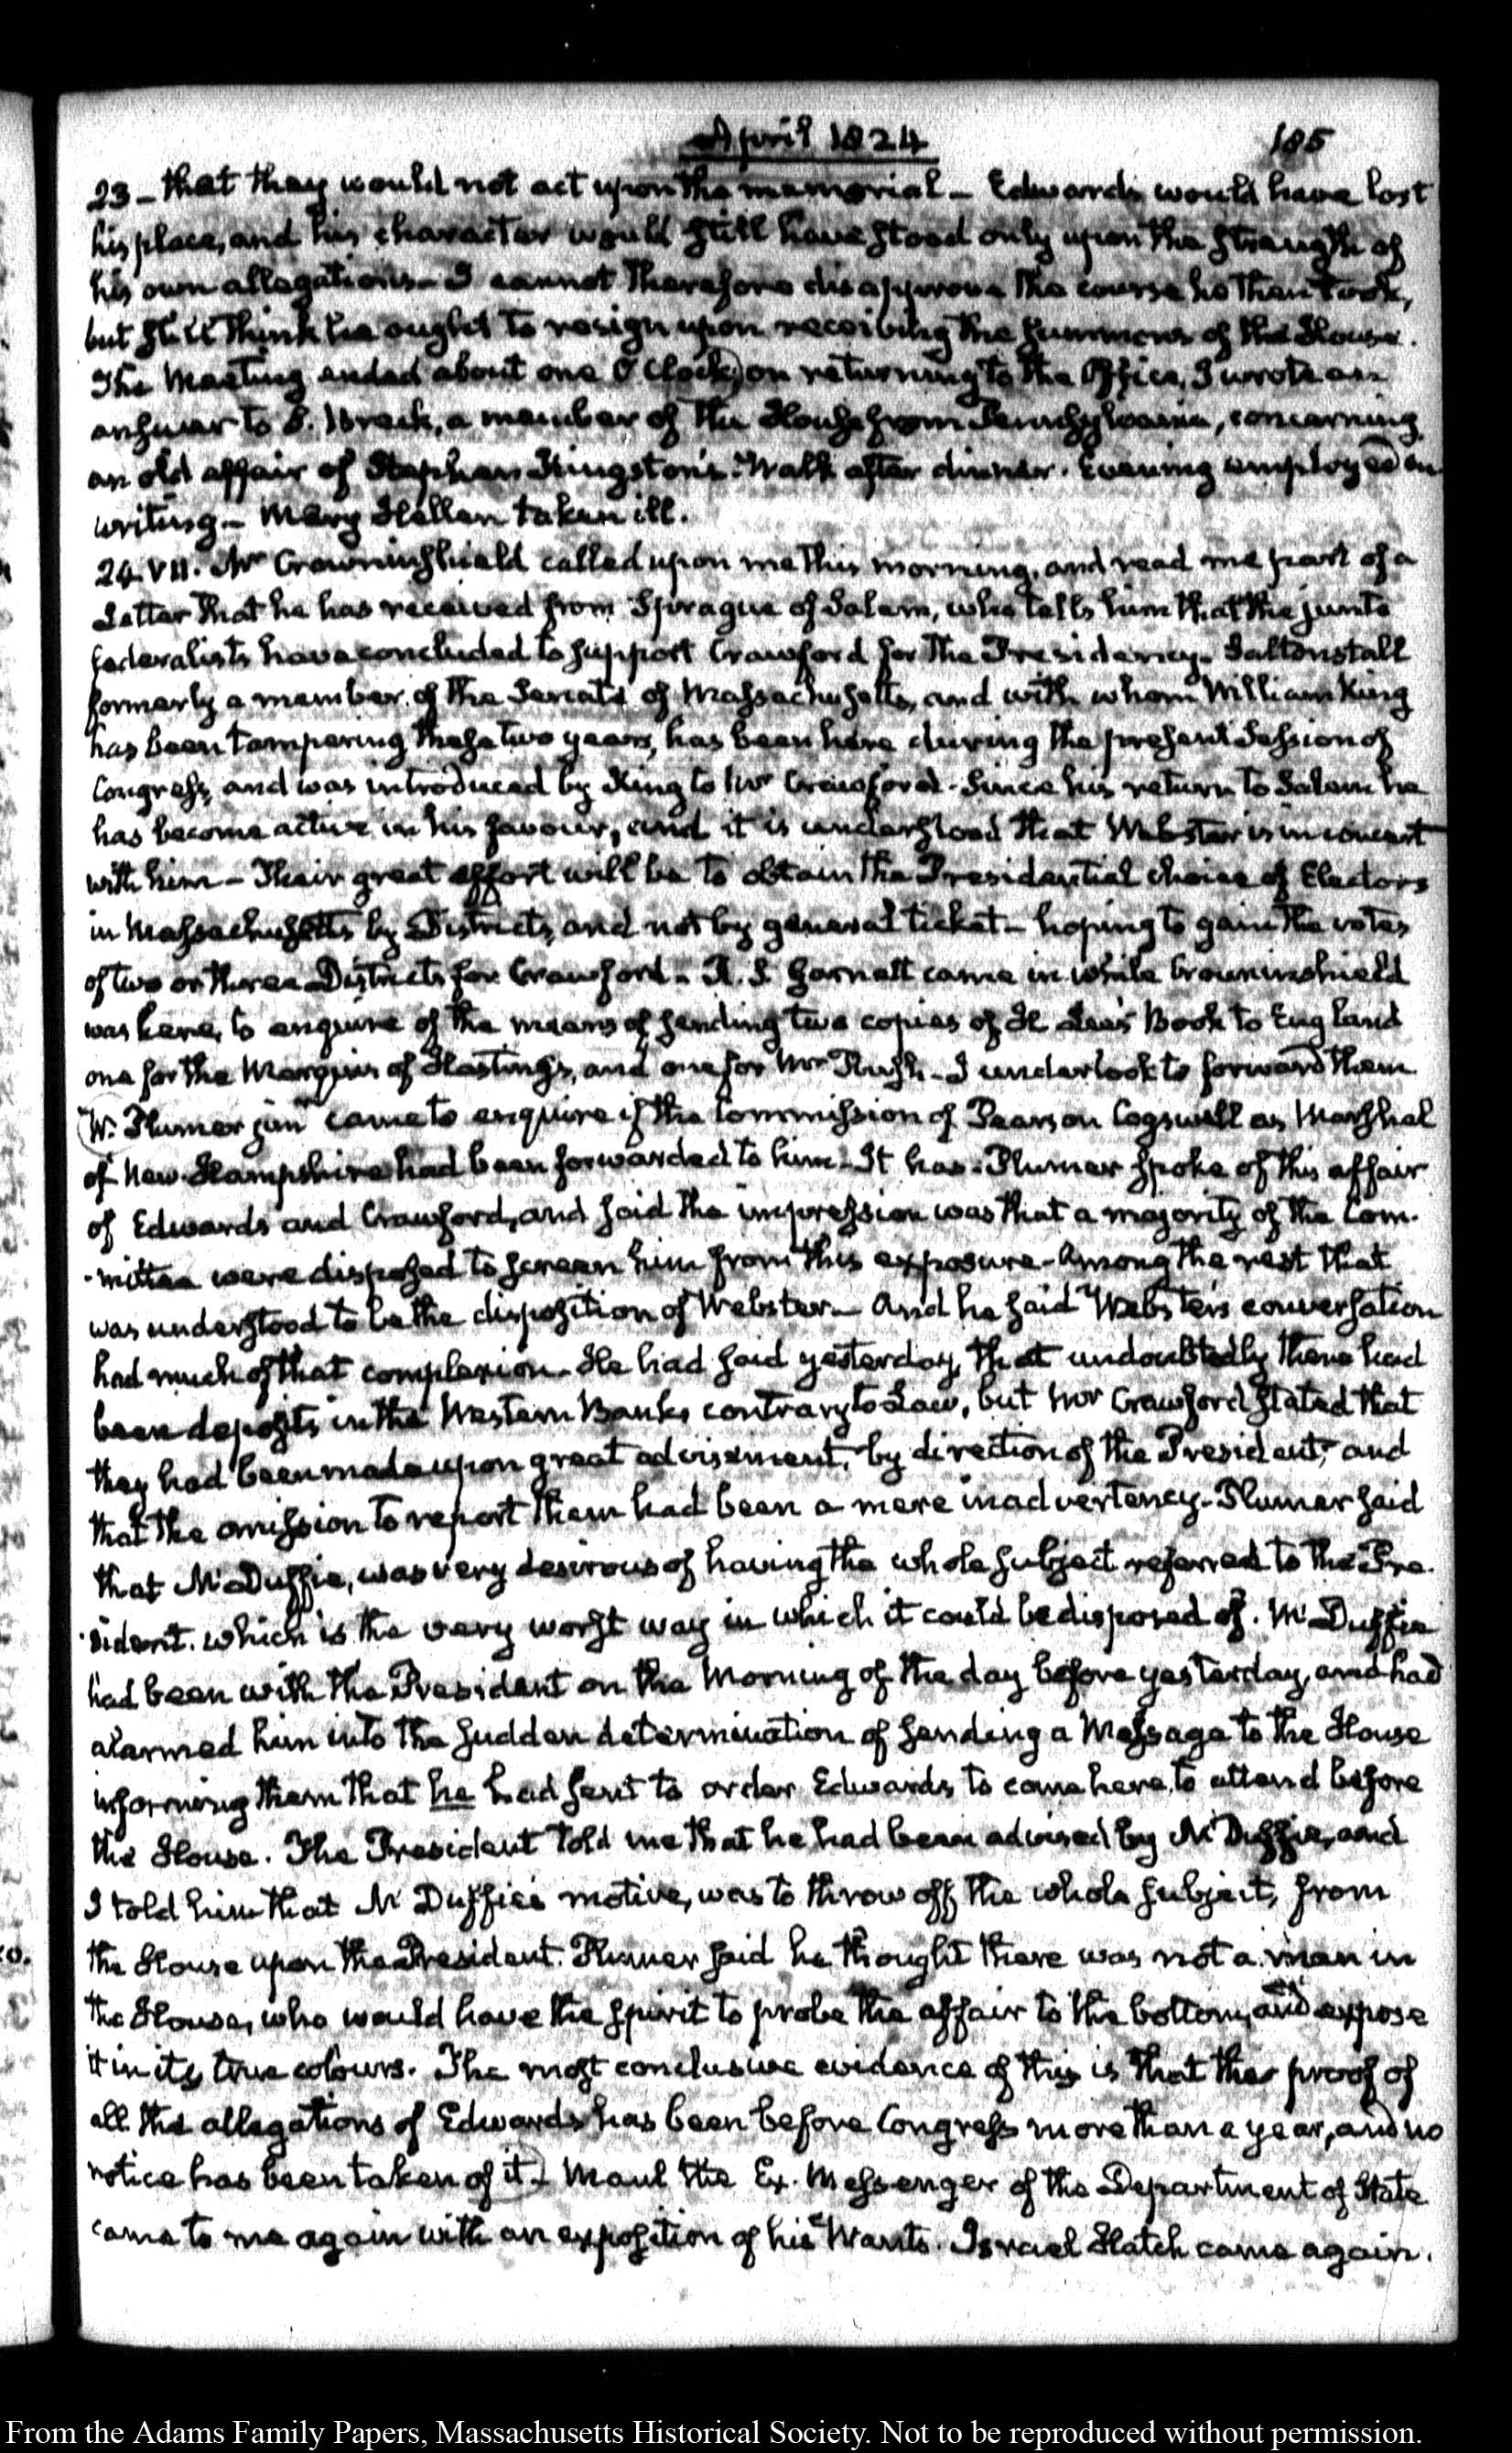 April 1824
185
23 - that they would not act upon the memorial - Edwards would have lost
his place, and his character would still have stood only upon the strength of
his own allegations - I cannot therefore disapprove the course he then took,
but still think he ought to resign upon receiving the summons of the House.
The Meeting ended about one O'Clock; on returning to the Office, I wrote an
answer to S. Breck, a member of the House from Pennsylvania, concerning
an old affair of Stephen Kingston's. Walk after dinner. Evening employed in
writing - Mary Hellen taken ill.
24. VII. Mr Crowninshield called upon me this morning, and read me part of a
Letter that he has received from Sprague of Salem, who tells him that the junto
federalists have concluded to support Crawford for the Presidency. Saltonstall
formerly a member of the Senate of Massachusetts, and with whom William King
has been tampering these two years, has been here during the present Session of
Congress, and was introduced by King to Mr Crawford. Since his return to Salem he
has become active in his favour, and it is understood that Webster is in concert
with him - Their great effort will be to obtain the Presidential choice of Electors
in Massachusetts by Districts, and not by general ticket - hoping to gain the votes
of two or three Districts for Crawford - R. S. Garnett came in while Crowninshield
was here, to enquire of the means of sending two copies of H. Lee's Book to England
one for the Marquis of Hastings, and one for Mr Rush - I undertook to forward them
W. Plumer junr came to enquire if the Commission of Pearson Cogswell as Marshal
of New-Hampshire had been forwarded to him - It has - Plumer spoke of this affair
of Edwards and Crawford, and said the impression was that a majority of the Com-
-mittee were disposed to screen him from this exposure - Among the rest that
was understood to be the disposition of Webster - And he said Webster's conversation
had much of that complexion - He had said yesterday, that undoubtedly there had
been deposits in the Western Banks contrary to Law, but Mr Crawford stated that
they had been made upon great advisement, by direction of the President, and
that the omission to report them had been a mere inadvertency - Plumer said
that McDuffie, was very desirous of having the whole subject referred to the Pre-
-sident. which is the very worst way in which it could be disposed of. McDuffie
had been with the President on the Morning of the day before yesterday, and had
alarmed him into the sudden determination of sending a Message to the House
informing them that he had sent to order Edwards to come here, to attend before
the House. The President told me that he had been advised by McDuffie, and
I told him that McDuffie's motive, was to throw off the whole subject, from
the House upon the President. Plumer said he thought there was not a man in
the House, who would have the spirit to probe the affair to the bottom, and expose
it in its true colours. The most conclusive evidence of this is that the proof of
all the allegations of Edwards has been before Congress more than a year, and no
notice has been taken of it - Maul the Ex. Messenger of the Department of State
came to me again with an exposition of his Wants. Israel Hatch came again.
From the Adams Family Papers, Massachusetts Historical Society. Not to be reproduced without permission.